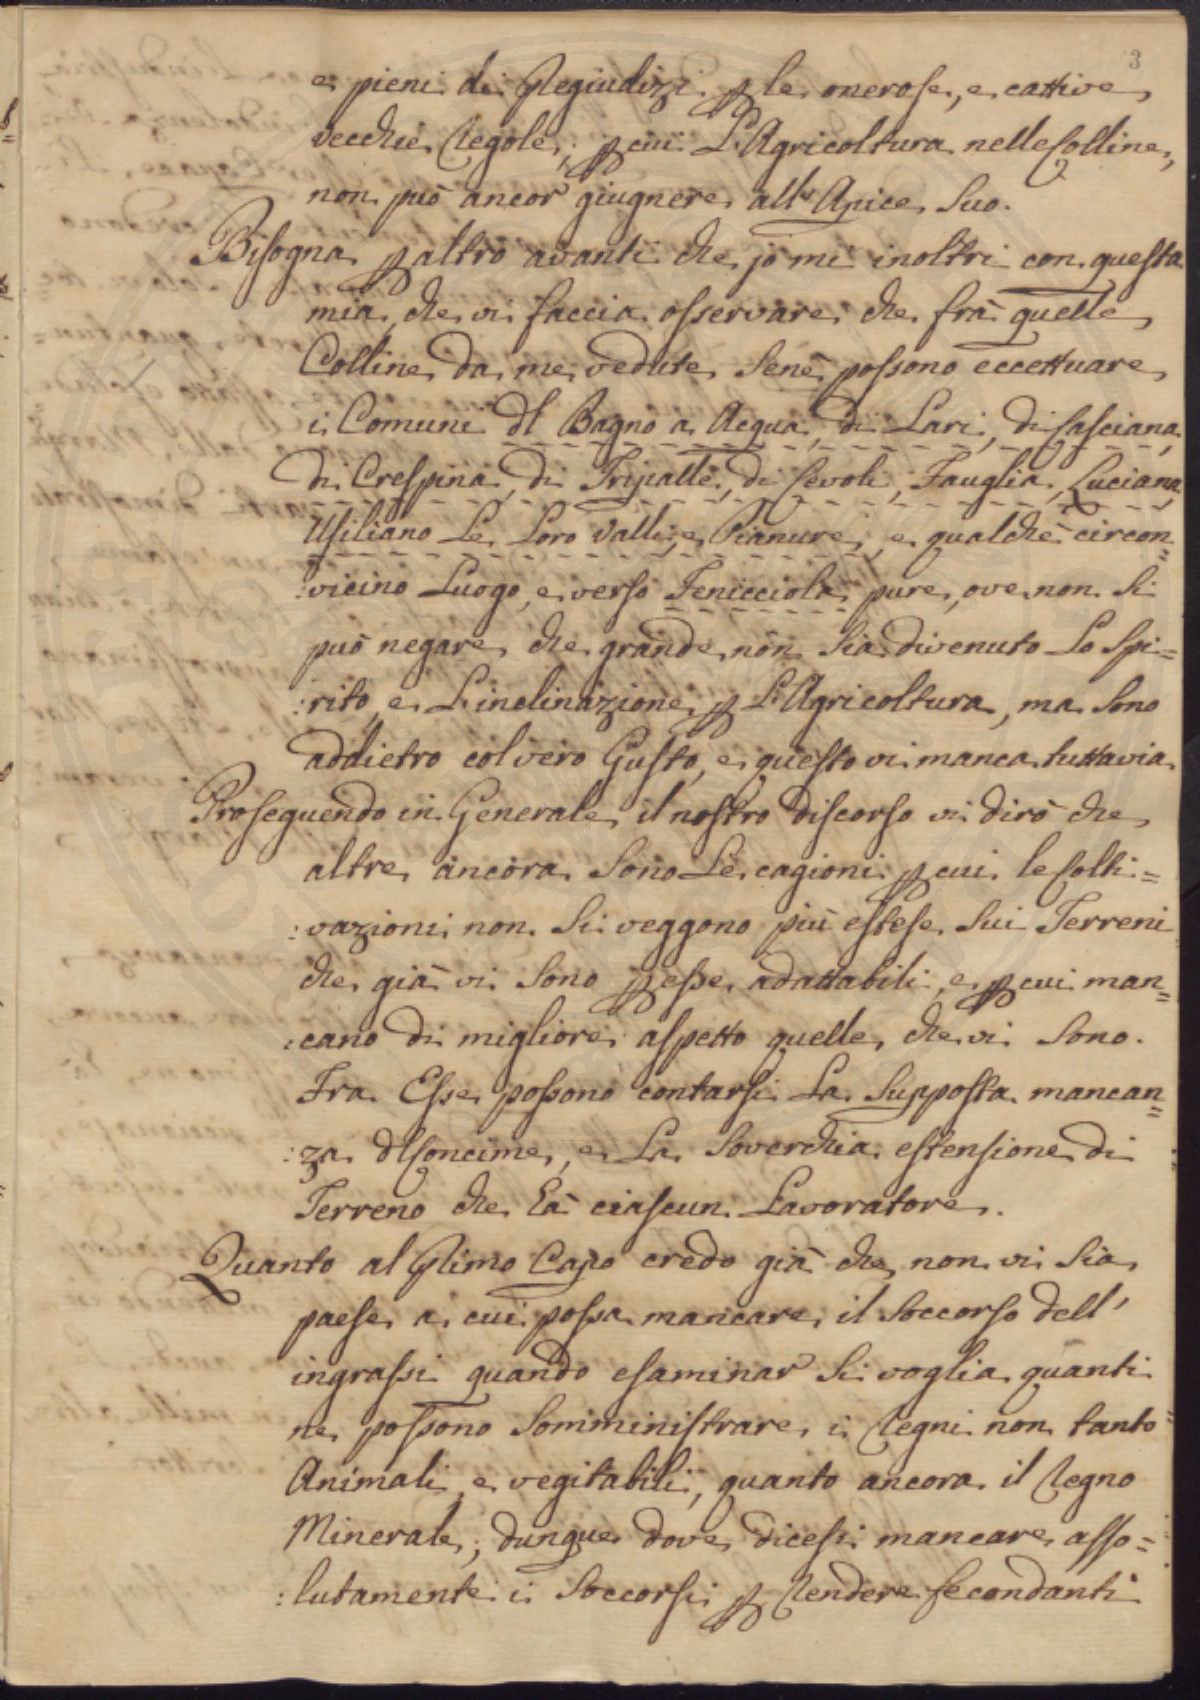 3
e pieni di Pregiudizi p le onerose, e cattive
vecchie Regole, p cui L'Agricoltura nelle Colline,
non può ancor giugnere all'Apice Suo.
Bisogna p altro avanti che jo mi inoltri con questa
mia, che vi faccia osservare che frà quelle
Colline da me vedute Senè possono eccettuare
i Comuni dl Bagno a Acqua, di Lari, di Casciana,
di Crespina, di Tripalle, di Cevoli, Fauglia, Luciana,
Usiliano Le Loro Valli, e Pianure, e qualche circon=
:vicino Luogo, e verso Fenicciola pure, ove non Si
può negare che grande non Sia divenuto Lo Spi:=
:rito, e L'inclinazione p L'Agricoltura, ma Sono
addietro col vero Gusto, e questo vi manca tuttavia.
Proseguendo in Generale il nostro discorso vi dirò che
altre ancora Sono Le cagioni p cui le Colti:=
:vazioni non Si veggono più estese Sui Terreni
che già vi Sono p esse adattabili, e p cui man=
:cano di migliore aspetto quelle, che vi Sono.
Fra Esse possono contarsi La Supposta mancan=
:za dl Concime, e La Soverchia estensione di
Terreno che hà ciascun Lavoratore.
Quanto al Primo Capo credo già che non vi Sia
paese a cui possa mancare il Soccorso dell'
ingrassi quando esaminar Si voglia quanti
ne possono Somministrare i Regni non tanto
Animali, e vegitabili, quanto ancora il Regno
Minerale, dunque dove dicesi mancare asso:=
:lutamente i Soccorsi p Rendere fecondanti